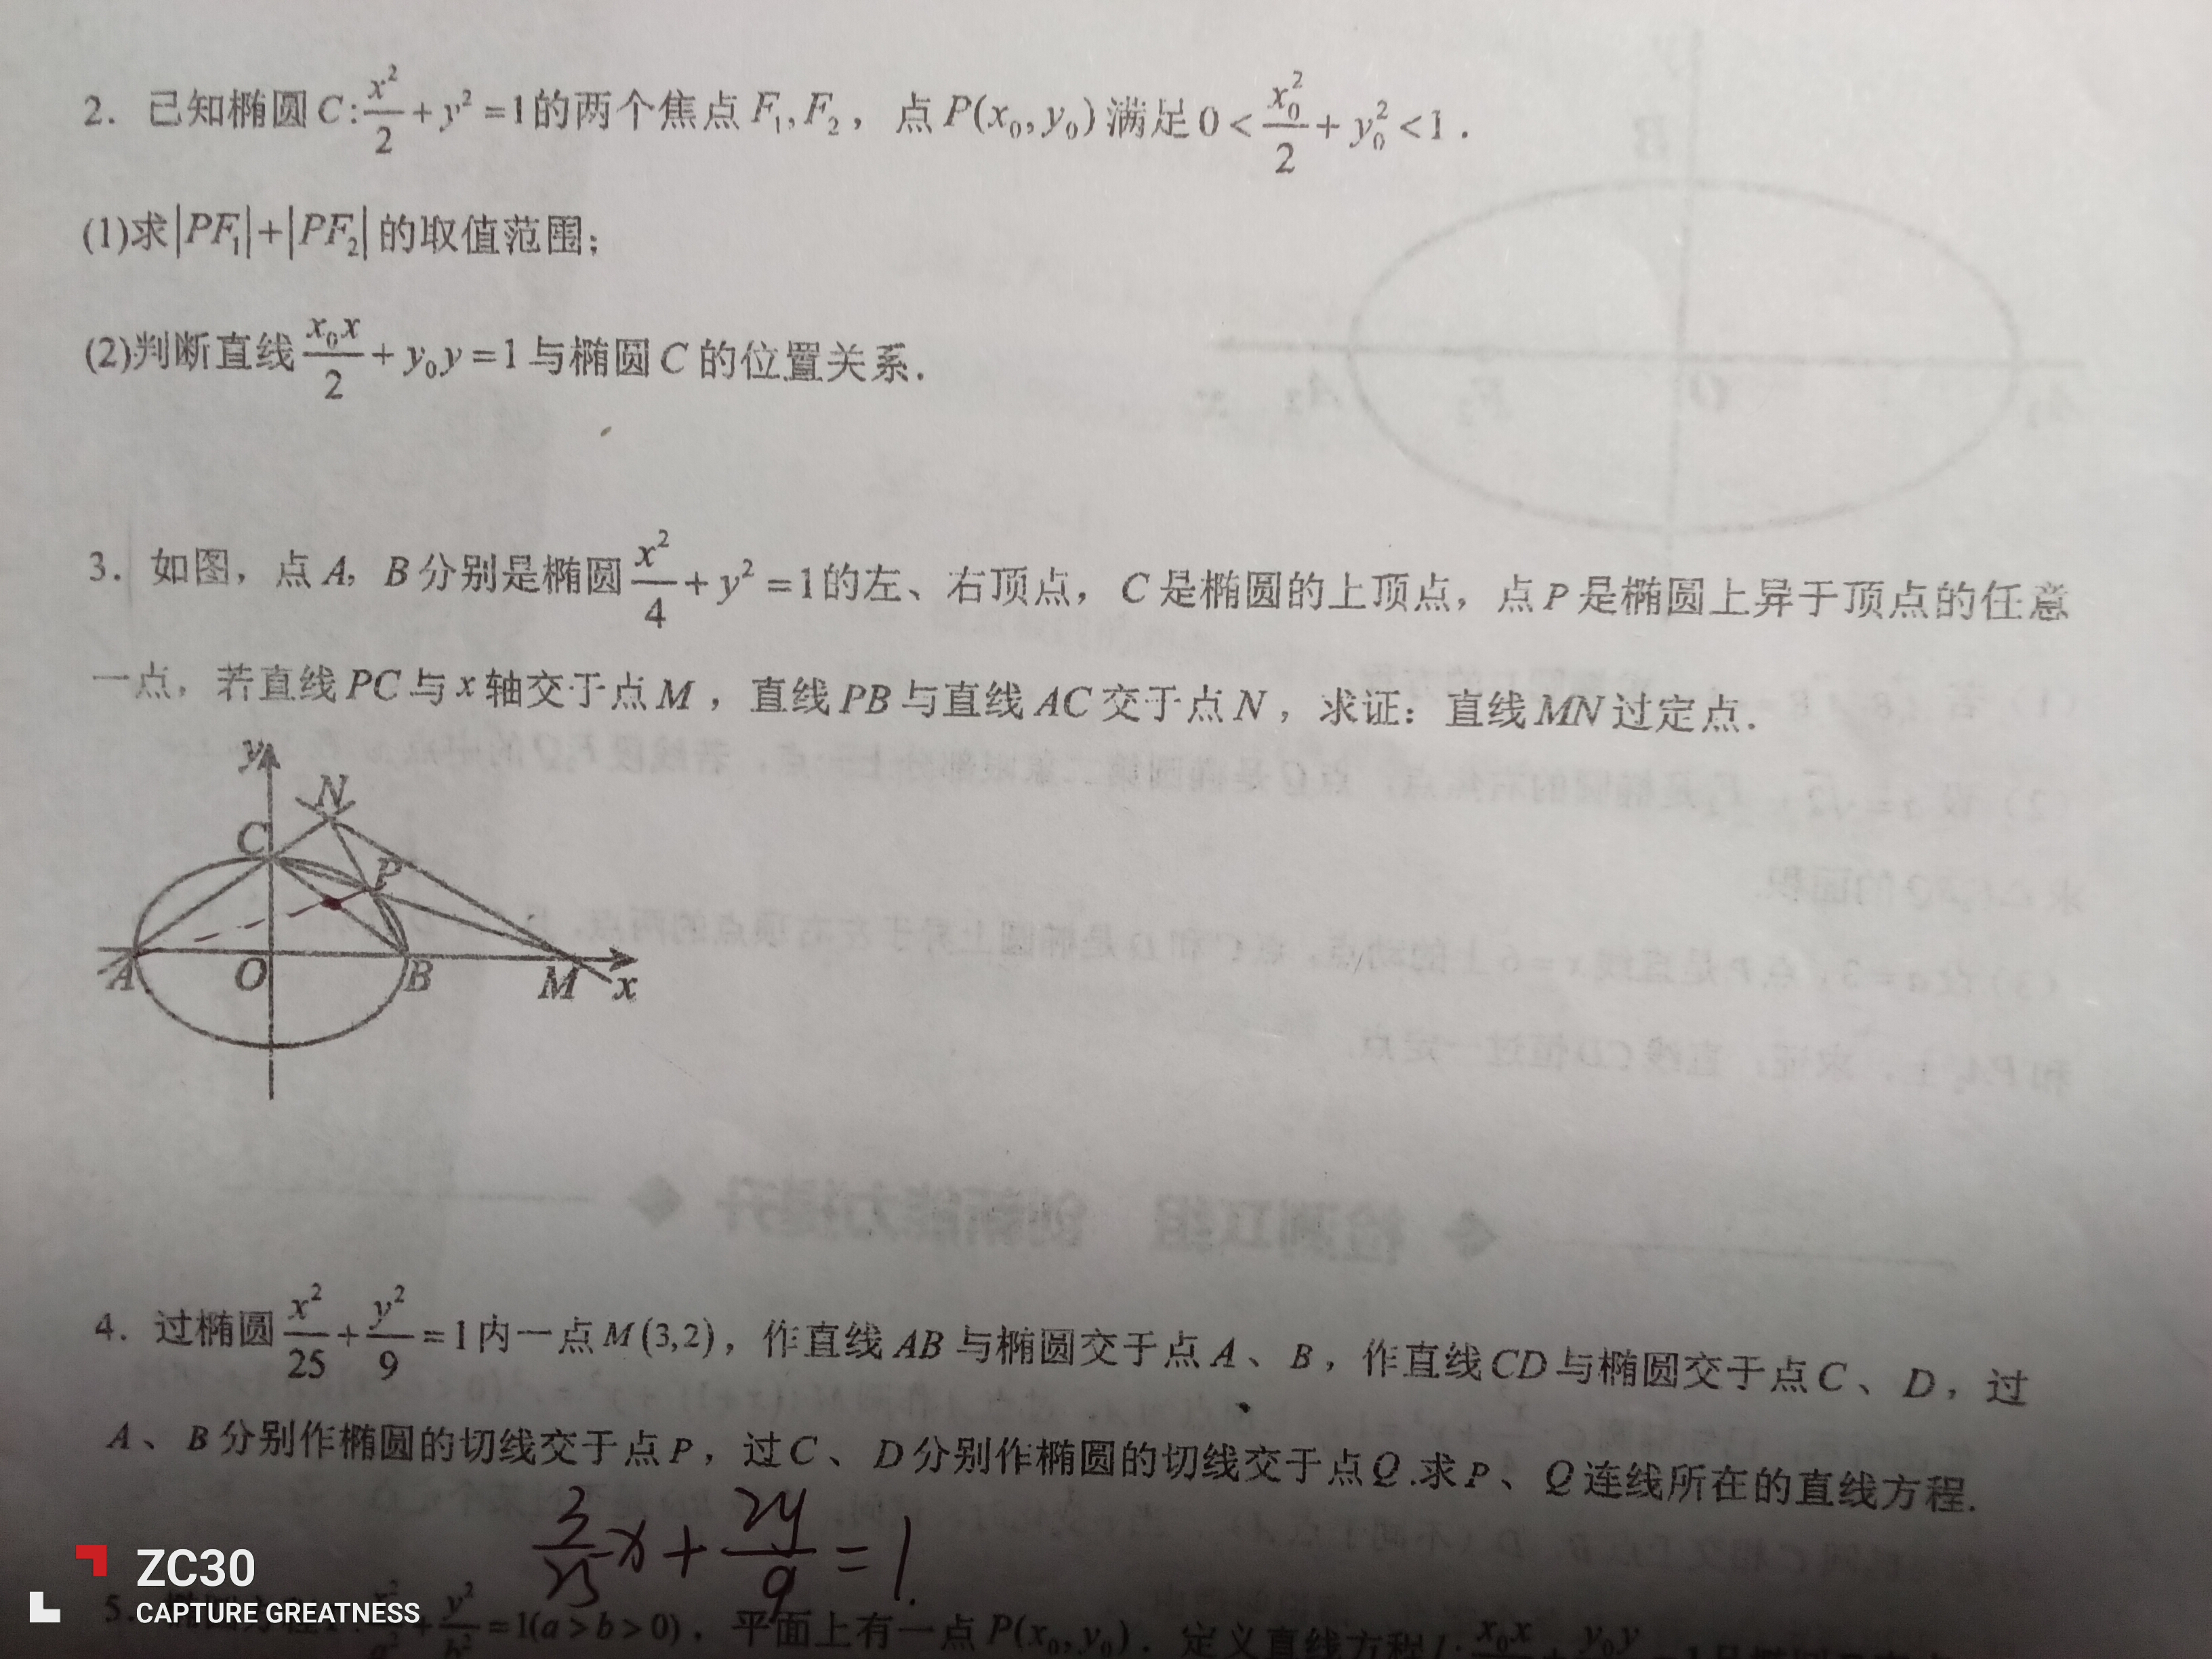 2. 已知椭圆C:x²/2+y²=1的两个焦点F₁,F₂，点P(x₀,y₀)满足0<x₀²/2+y₀²<1.
(1)求|PF₁|+|PF₂|的取值范围；
(2)判断直线x₀x/2+y₀y=1与椭圆C的位置关系.
3. 如图，点A，B分别是椭圆x²/4+y²=1的左、右顶点，C是椭圆的上顶点，点P是椭圆上异于顶点的任意
一点，若直线PC与x轴交于点M，直线PB与直线AC交于点N，求证：直线MN过定点.
y
N
C
P
A O B M x
4. 过椭圆x²/25+y²/9=1内一点M(3,2)，作直线AB与椭圆交于点A、B，作直线CD与椭圆交于点C、D，过
A、B分别作椭圆的切线交于点P，过C、D分别作椭圆的切线交于点Q.求P、Q连线所在的直线方程.
3/25x+2y/9=1.
5. +y²/b²=1(a>b>0)．平面上有一点P(x₀,y₀)．定义直线方程l:x₀x
ZC30
CAPTURE GREATNESS